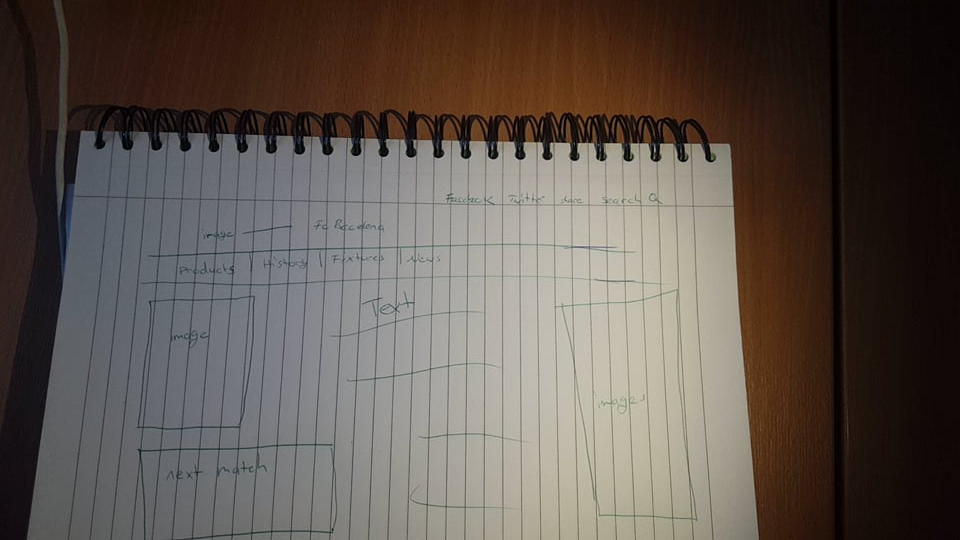 Facebook Twitter share search
image Fc Barcelona
Products | History | Fixtures | News
Text
image
images
next match